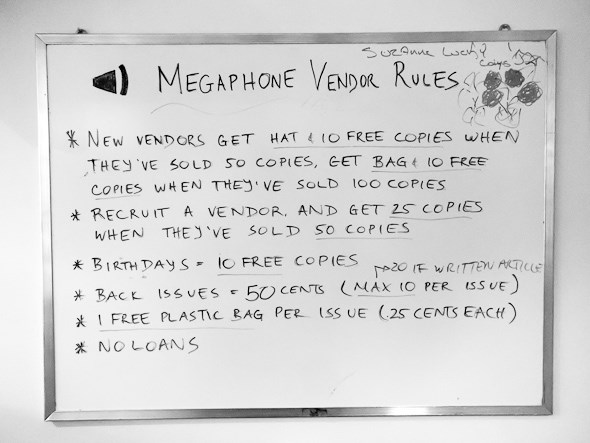 Suzanne
MEGAPHONE VENDOR RULES
* NEW VENDORS GET HAT & 10 FREE COPIES WHEN
THEY'VE SOLD 50 COPIES, GET BAG & 10 FREE
COPIES WHEN THEY'VE SOLD 100 COPIES
* RECRUIT A VENDOR. AND GET 25 COPIES
WHEN THEY'VE SOLD 50 COPIES
* BIRTHDAYS = 10 FREE COPIES
→20 IF WRITTEN ARTICLE
* BACK ISSUES = 50 CENTS (MAX 10 PER ISSUE)
* 1 FREE PLASTIC BAG PER ISSUE (.25 CENTS EACH)
* NO LOANS